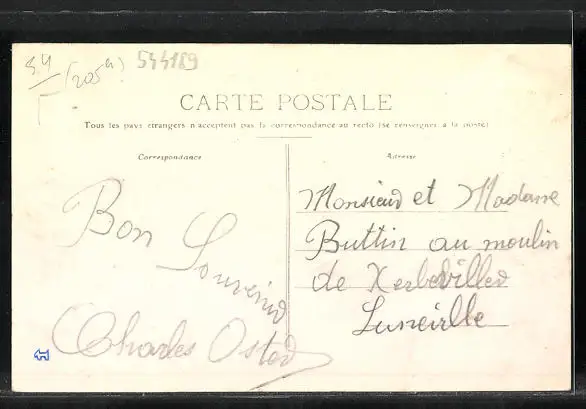 54 (205a) 544189
CARTE POSTALE
Tous les pays étrangers n'acceptent pas la correspondance au recto (se renseigner à la poste)
Correspondance
Adresse
Bon
Souvenir
Charles
Monsieur et Madame
Buttin au moulin
de Xerbéviller
Lunéville